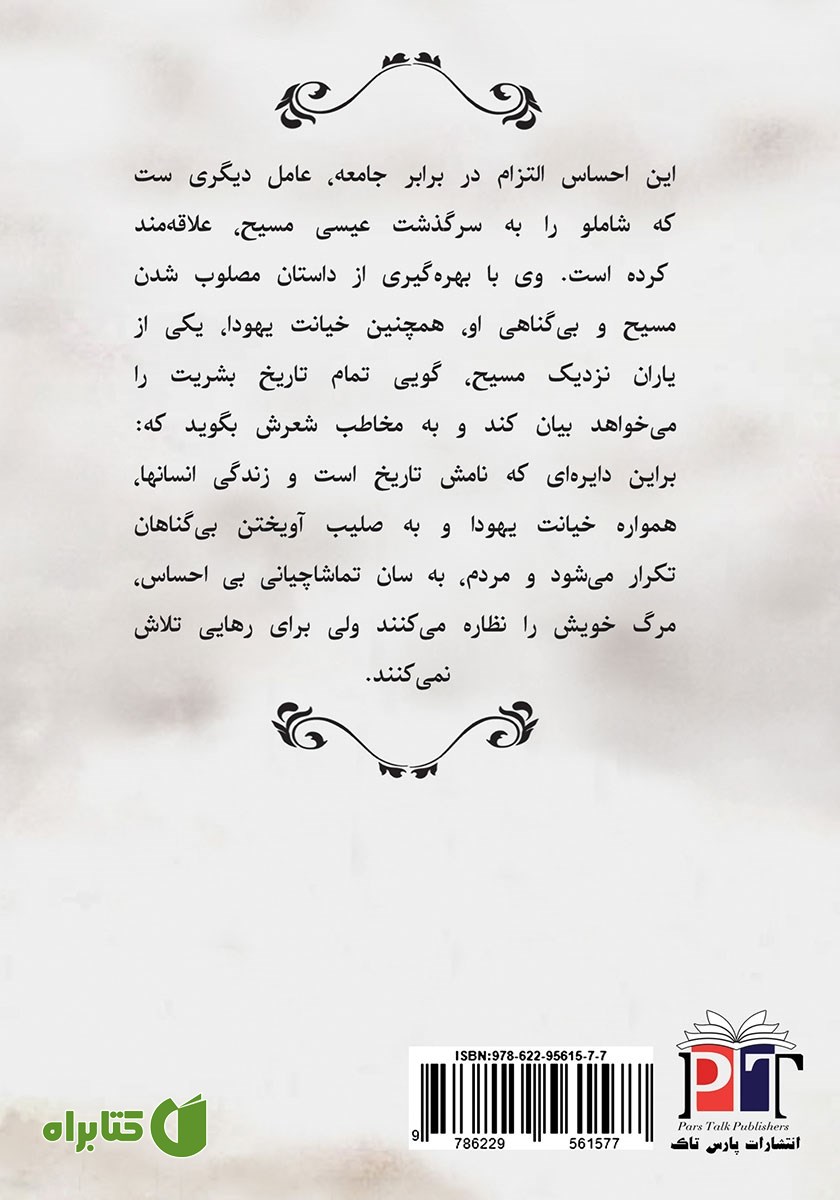 این احساس التزام در برابر جامعه، عامل دیگری ست
که شاملو را به سرگذشت عیسی مسیح، علاقه‌مند
کرده است. وی با بهره‌گیری از داستان مصلوب شدن
مسیح و بی‌گناهی او، همچنین خیانت یهودا، یکی از
یاران نزدیک مسیح، گویی تمام تاریخ بشریت را
می‌خواهد بیان کند و به مخاطب شعرش بگوید که:
براین دایره‌ای که نامش تاریخ است و زندگی انسانها،
همواره خیانت یهودا و به صلیب آویختن بی‌گناهان
تکرار می‌شود و مردم، به سان تماشاچیانی بی احساس،
مرگ خویش را نظاره می‌کنند ولی برای رهایی تلاش
نمی‌کنند.
ISBN:978-622-95615-7-7
9 786229 561577
PT
Pars Talk Publishers
انتشارات پارس تاک
کتابراه